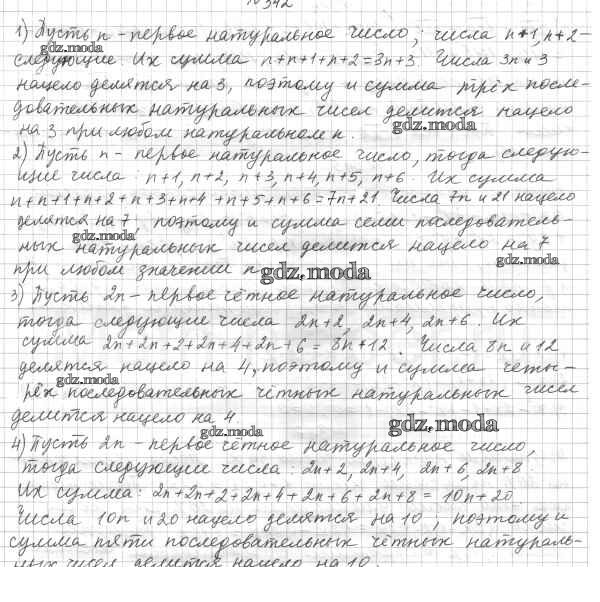 №342
1) Пусть n - первое натуральное число, числа n+1, n+2 -
следующие. Их сумма n+n+1+n+2=3n+3. Числа 3n и 3
нацело делятся на 3, поэтому и сумма трёх после-
довательных натуральных чисел делится нацело
на 3 при любом натуральном n.
2) Пусть n - первое натуральное число, тогда следую-
щие числа: n+1, n+2, n+3, n+4, n+5, n+6. Их сумма
n+n+1+n+2+n+3+n+4+n+5+n+6=7n+21. Числа 7n и 21 нацело
делятся на 7, поэтому и сумма семи последователь-
ных натуральных чисел делится нацело на 7
при любом значении n
3) Пусть 2n - первое чётное натуральное число,
тогда следующие числа 2n+2, 2n+4, 2n+6. Их
сумма 2n+2n+2+2n+4+2n+6=8n+12. Числа 8n и 12
делятся нацело на 4, поэтому и сумма четы-
рёх последовательных чётных натуральных чисел
делится нацело на 4.
4) Пусть 2n - первое чётное натуральное число,
тогда следующие числа: 2n+2, 2n+4, 2n+6, 2n+8.
Их сумма: 2n+2n+2+2n+4+2n+6+2n+8=10n+20.
Числа 10n и 20 нацело делятся на 10, поэтому и
сумма пяти последовательных чётных натураль-
ных чисел делится нацело на 10.
gdz.moda
gdz.moda
gdz.moda
gdz.moda
gdz.moda
gdz.moda
gdz.moda
gdz.moda